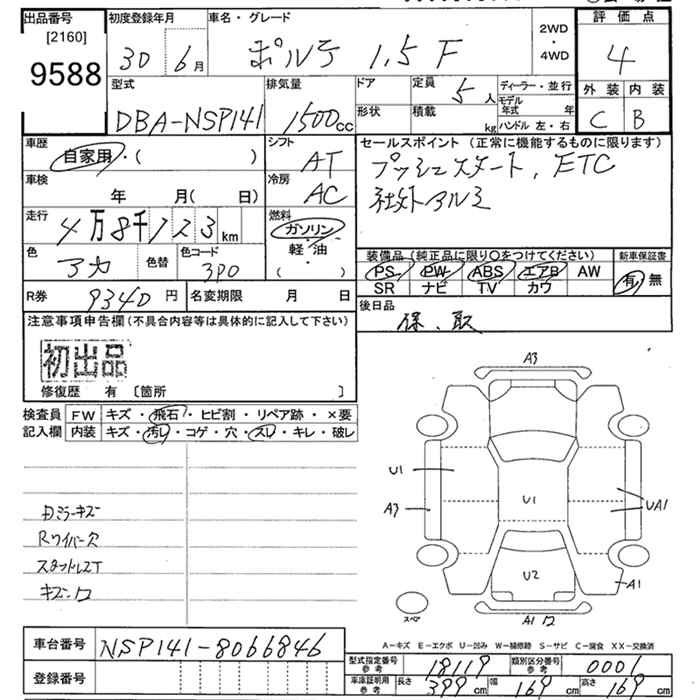 出品番号
[2160]
9588
初度登録年月
30 6月
車名・グレード
ポルテ 1.5 F
2WD
・
4WD
評価点
4
外装 内装
C B
型式
DBA-NSP141
排気量
1500cc
ドア
形状
定員 5人
積載 kg
ディーラー・並行
モデル年式 年
ハンドル 左・右
車歴
自家用・( )
シフト
AT
セールスポイント(正常に機能するものに限ります)
プッシュスタート、ETC
社外アルミ
車検
年 月( 日)
冷房
AC
走行
4万8千123km
燃料
ガソリン
軽・油
( )
色
アカ
色替
色コード
3P0
装備品(純正品に限り〇をつけてください)
PS PW ABS エアB AW
SR ナビ TV カワ
新車保証書
有 無
R券 9340円
名変期限 月 日
後日品
保、取
注意事項申告欄(不具合内容等は具体的に記入して下さい)
初出品
修復歴 有 〔箇所 〕
検査員記入欄
FW キズ・飛石・ヒビ割・リペア跡・×要
内装 キズ・汚レ・コゲ・穴・スレ・キレ・破レ
ミラーキズ
Rワイパー欠
スタットレスT
A3
U1
A3
U1
UA1
U2
A1
A1
スペア
車台番号 NSP141-8066846
登録番号
A-キズ E-エクボ U-凹み W-補修跡 S-サビ C-腐食 XX-交換済
型式指定番号 参考 18119
類別区分番号 参考 0001
車庫証明用 参考 長さ 399cm 幅 169cm 高さ 169cm